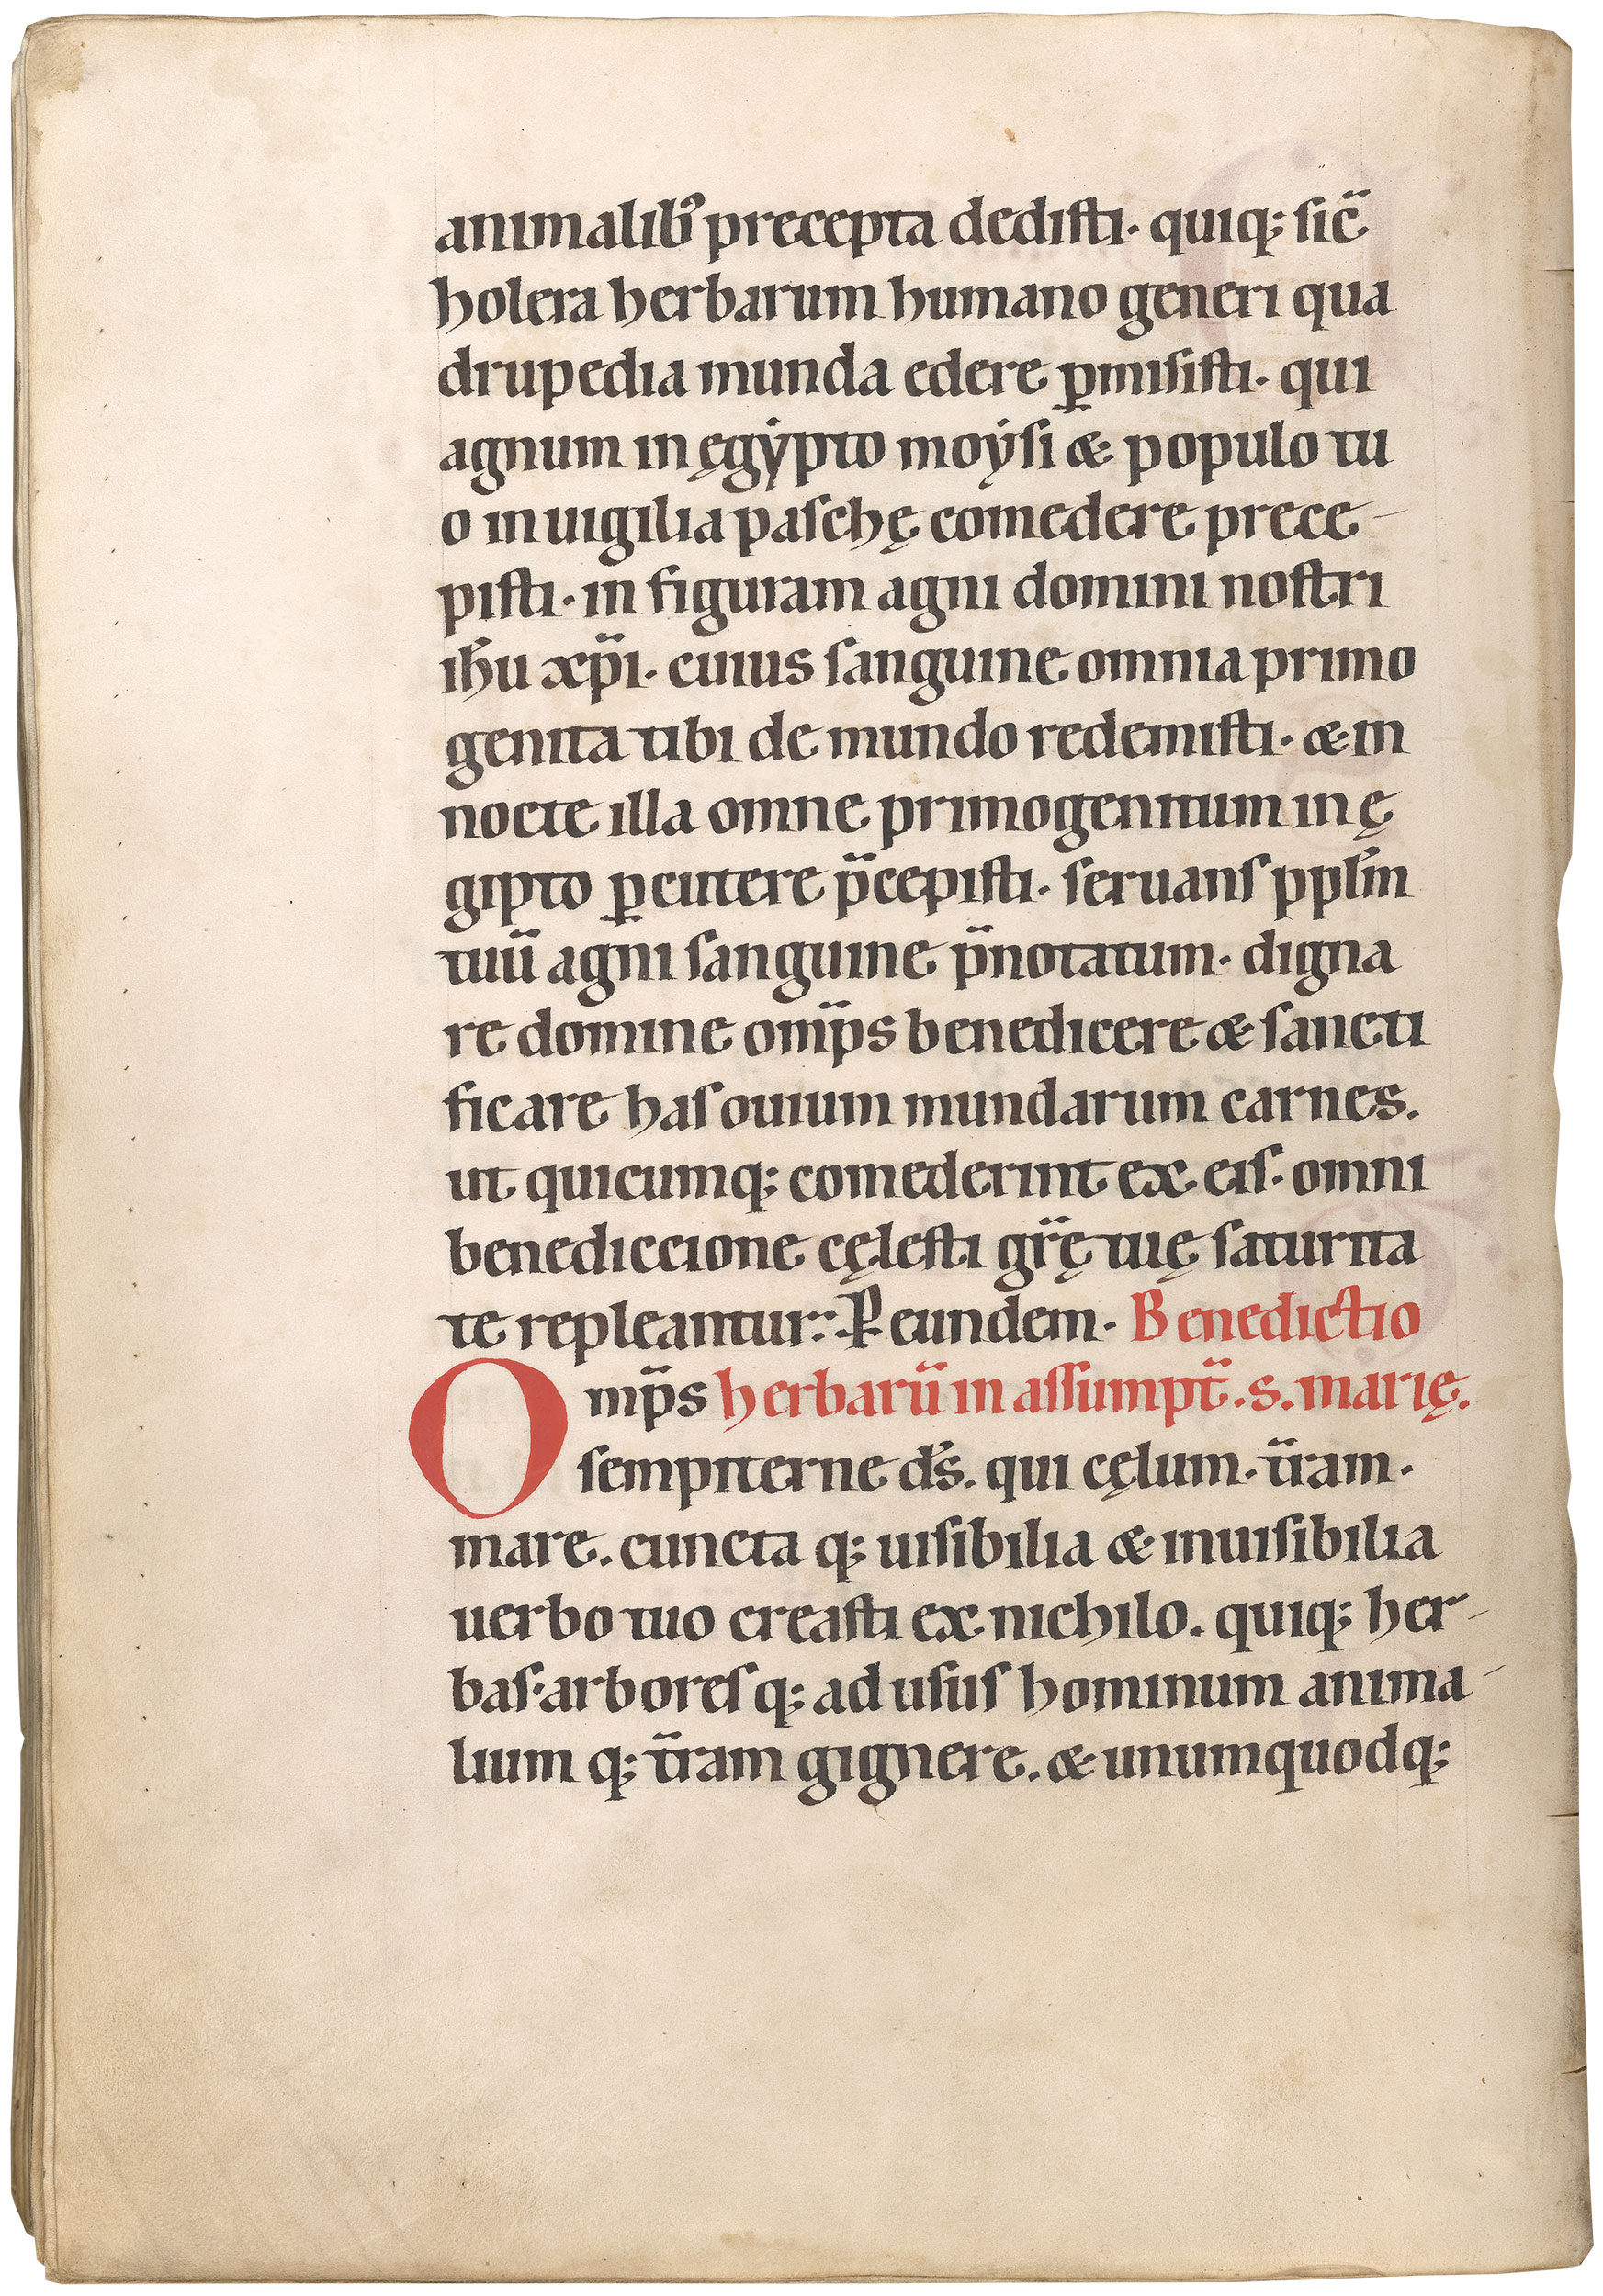 animalib᾽ precepta dedisti· quiq; sic̄
holera herbarum humano generi qua
drupedia munda edere ꝑmisisti· qui
agnum in ęgẏpto moẏsi & populo tu
o in uigilia paschę comedere prece-
pisti· in figuram agni domini nostri
ih̅u xp̅i· cuius sanguine omnia primo
genita tibi de mundo redemisti· & in
nocte illa omne primogenitum in ę
gipto ꝑcutere p̅cepisti· seruans ppl̅m
tuū agni sanguine p̅notatum· digna
re domine om̅ps benedicere & sancti
ficare has ouium mundarum carnes.
ut quicumq; comederint ex eis· omni
benediccione cęlesti gr̅ę tuę saturita
te repleantur:· Ꝑ eundem· Benedictio
Om̅ps herbarū in assumpt̅.s.marię.
sempiterne d̅s. qui cęlum· t̅ram·
mare. cuncta q; uisibilia & inuisibilia
uerbo tuo creasti ex nichilo. quiq; her-
bas·arbores q; ad usus hominum anima-
lium q; t̅ram gignere. & unumquodq;